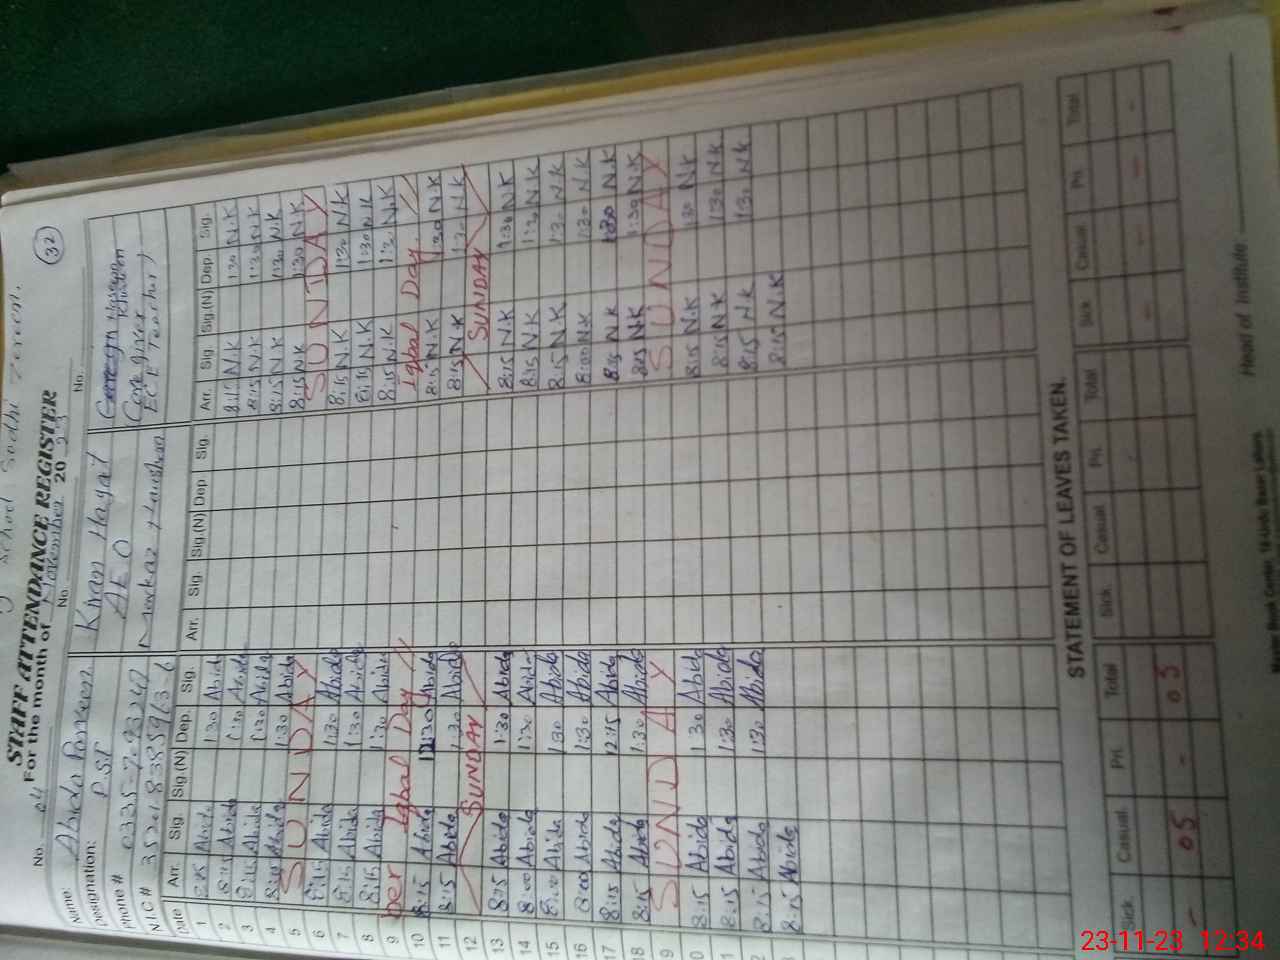 School Sodhi Zereen.
STAFF ATTENDANCE REGISTER
(32)
No. 04 For the month of November 2023
No. No.
Name: Abida Parveen Khan Hayat
Designation: P.S.T AEO Care giver
Phone # 0335-7093247 Markaz ECE Teacher)
N.I.C #
Date Arr. Sig. Sig.(N) Dep. Sig. Arr. Sig. Sig.(N) Dep. Sig. Arr. Sig. Sig.(N) Dep. Sig.
1 8:15 Abida 1:30 Abida 8:15 N.K 1:30 N.K
2 8:15 Abida 1:30 Abida 8:15 N.K 1:30 N.K
3 8:15 Abida 1:30 Abida 8:15 N.K 1:30 N.K
4 8:15 Abida 1:30 Abida 8:15 N.K 1:30 N.K
5 SUNDAY SUNDAY
6 8:15 Abida 1:30 Abida 8:15 N.K 1:30 N.K
7 8:15 Abida 1:30 Abida 8:15 N.K 1:30 N.K
8 8:15 Abida 1:30 Abida 8:15 N.K 1:30 N.K
9 Iqbal Day Iqbal Day
10 8:15 Abida 12:30 Abida 8:15 N.K 1:30 N.K
11 8:15 Abida 1:30 Abida 8:15 N.K 1:30 N.K
12 SUNDAY SUNDAY
13 8:15 Abida 1:30 Abida 8:15 N.K 1:30 N.K
14 8:00 Abida 1:30 Abida 8:15 N.K 1:30 N.K
15 8:00 Abida 1:30 Abida 8:15 N.K 1:30 N.K
16 8:00 Abida 1:30 Abida 8:00 N.K 1:30 N.K
17 8:15 Abida 12:15 Abida 8:15 N.K 1:30 N.K
18 8:15 Abida 1:30 Abida 8:15 N.K 1:30 N.K
9 SUNDAY SUNDAY
0 8:15 Abida 1:30 Abida 8:15 N.K 1:30 N.K
1 8:15 Abida 1:30 Abida 8:15 N.K 1:30 N.K
2 8:15 Abida 1:30 Abida 8:15 N.K 1:30 N.K
8:15 Abida 8:15 N.K
STATEMENT OF LEAVES TAKEN.
Sick. Casual Pri. Total Sick. Casual Pri. Total Sick Casual Pri. Total
- 05 - 05 - - - -
Head of Institute
23-11-23 12:34